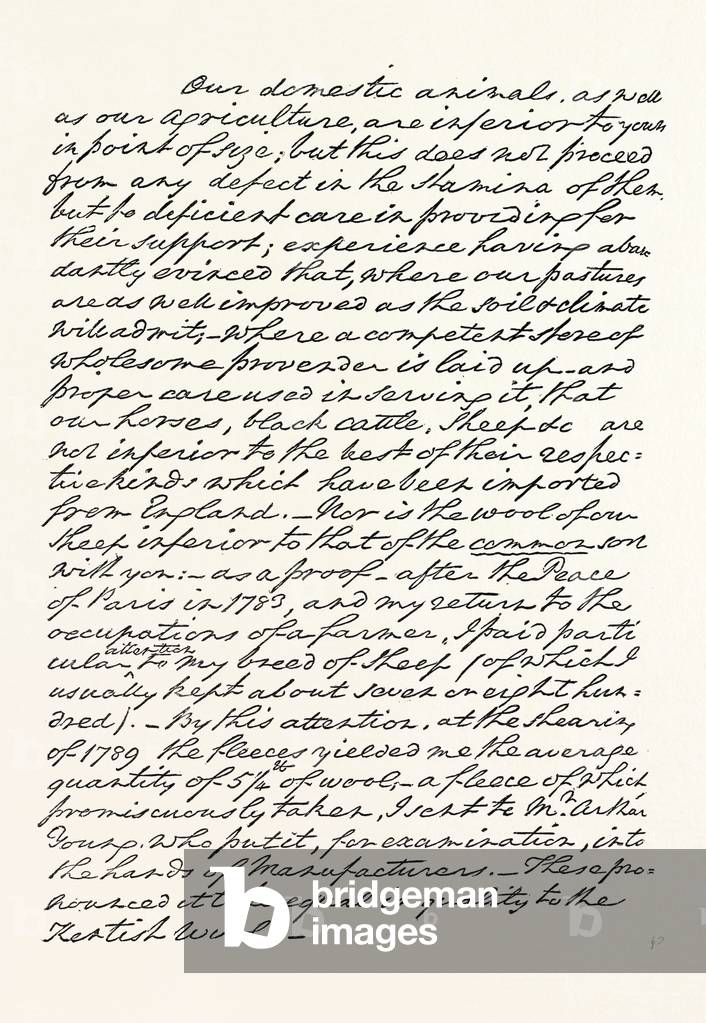 Our domestic animals, as well
as our agriculture, are inferior to yours
in point of size; but this does not proceed
from any defect in the stamina of them,
but to deficient care in providing for
their support; experience having abun
dantly evinced that, where our pastures
are as well improved as the soil & climate
will admit;- where a competent store of
wholesome provender is laid up - and
proper care used in serving it, that
our horses, black cattle, Sheep &c are
not inferior to the best of their respec=
tive kinds which have been imported
from England. - Nor is the wool of our
Sheep inferior to that of the common sort
with you:- as a proof - after the Peace
of Paris in 1783, and my return to the
occupations of a farmer, I paid parti
attention
cular to my breed of Sheep (of which I
usually kept about seven or eight hun=
dred). - By this attention, at the shearing
of 1789 the fleeces yielded me the average
quantity of 5¼ lb of wool;- a fleece of which
promiscuously taken, I sent to Mr. Arthur
Young, who put it, for examination, into
the hands of Manufacturers. - These pro=
nounced it equal in quality to the
Kentish Wool -
bridgeman
images